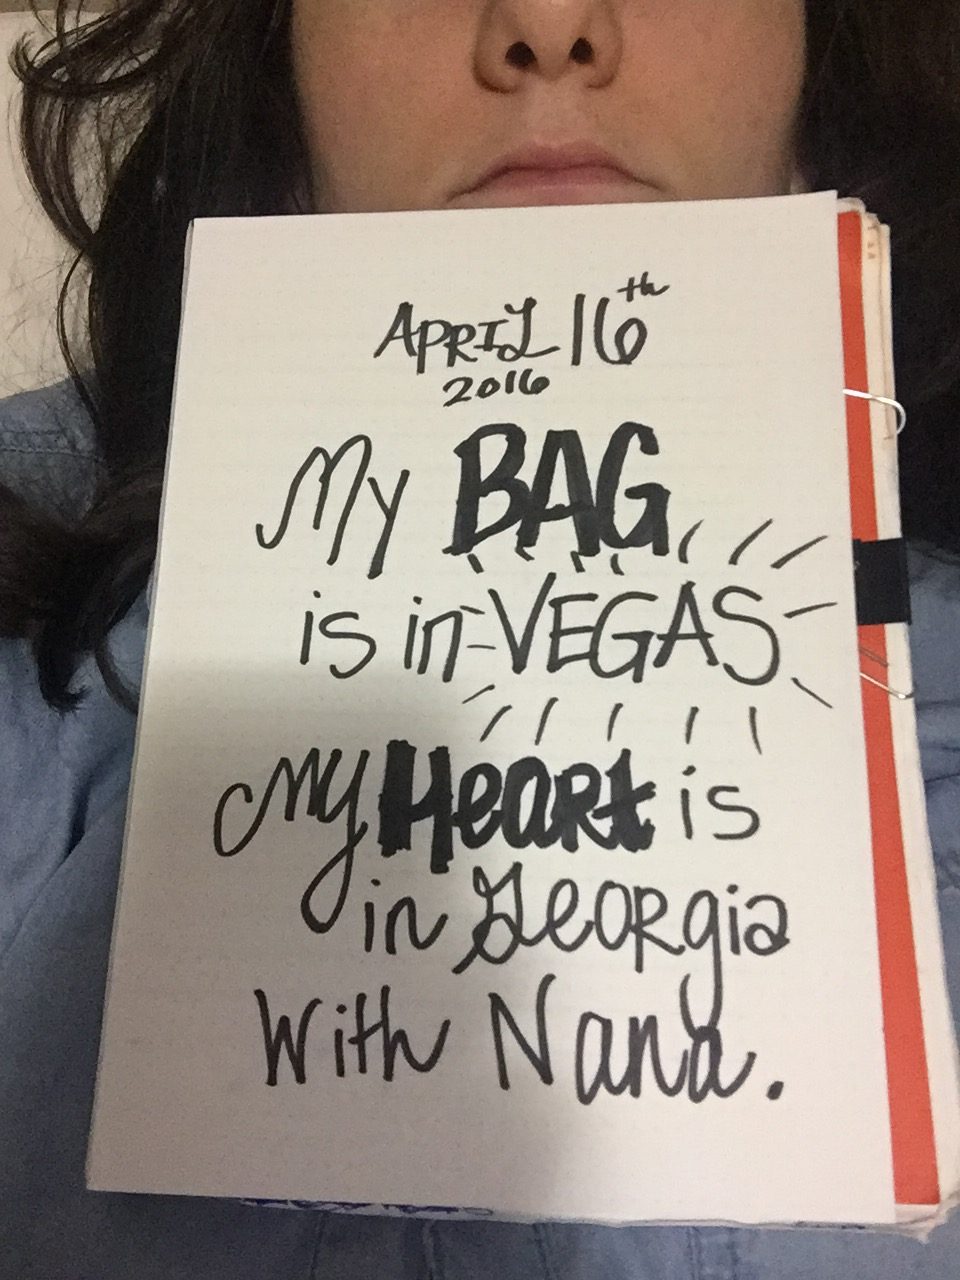 APRIL 16th
2016
My BAG
is in VEGAS
My Heart is
in Georgia
With Nana.